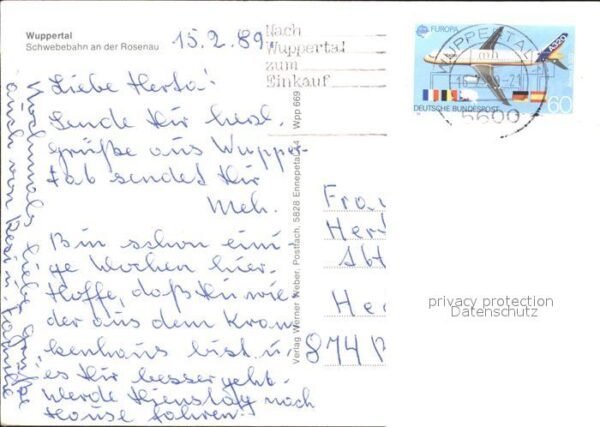 Wuppertal
Schwebebahn an der Rosenau
15.2.89
Nach
Wuppertal
zum
Einkauf
EUROPA
A320
DEUTSCHE BUNDESPOST
60
WUPPERTAL
5600
Liebe Herta!
Sende Dir herzl.
Grüße aus Wupper-
tal sendet Dir
Meh.
Bin schon eini-
ge Wochen hier.
Hoffe, daß Du wie-
der aus dem Kran-
kenhaus bist u.
es Dir besser geht.
Werde Dienstag nach
Hause fahren.
Nochmals liebe Grüße
auch von Resi u. Familie
Verlag Werner Weber, Postfach, 5828 Ennepetal 14 Wpp 669
Frau
Her
Abt
He
874
privacy protection
Datenschutz